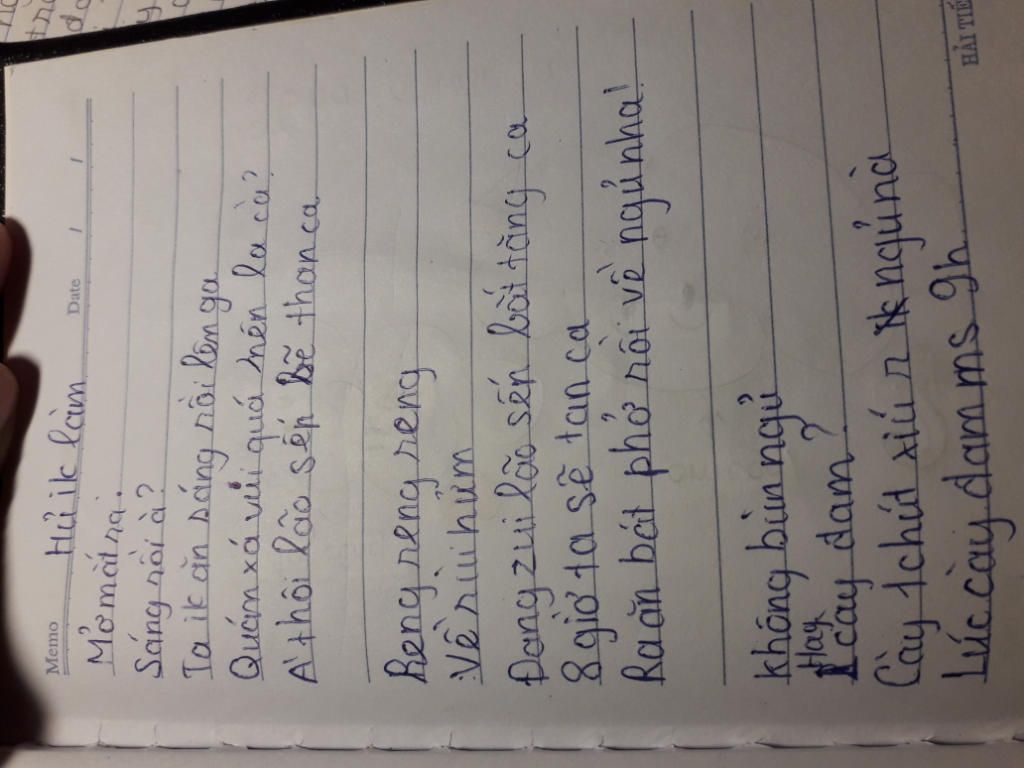 Memo Hủ ik làm Date / /
Mở mắt ra.
Sáng rồi à?
Ta ik ăn sáng rồi lên ga
Quán xá vui quá nên la cà?
A thôi lão sếp sẽ than ca
Reng reng reng
Về rùi hửm
Đang zui lão sếp bắt tăng ca
8 giờ ta sẽ tan ca
Ra ăn bát phở rồi về ngủ nha!
Không bùn ngủ
Hay cày dam?
Cày 1 chút xíu r ngủ nà
Lúc cày dam ms 9h
HẢI TIẾ